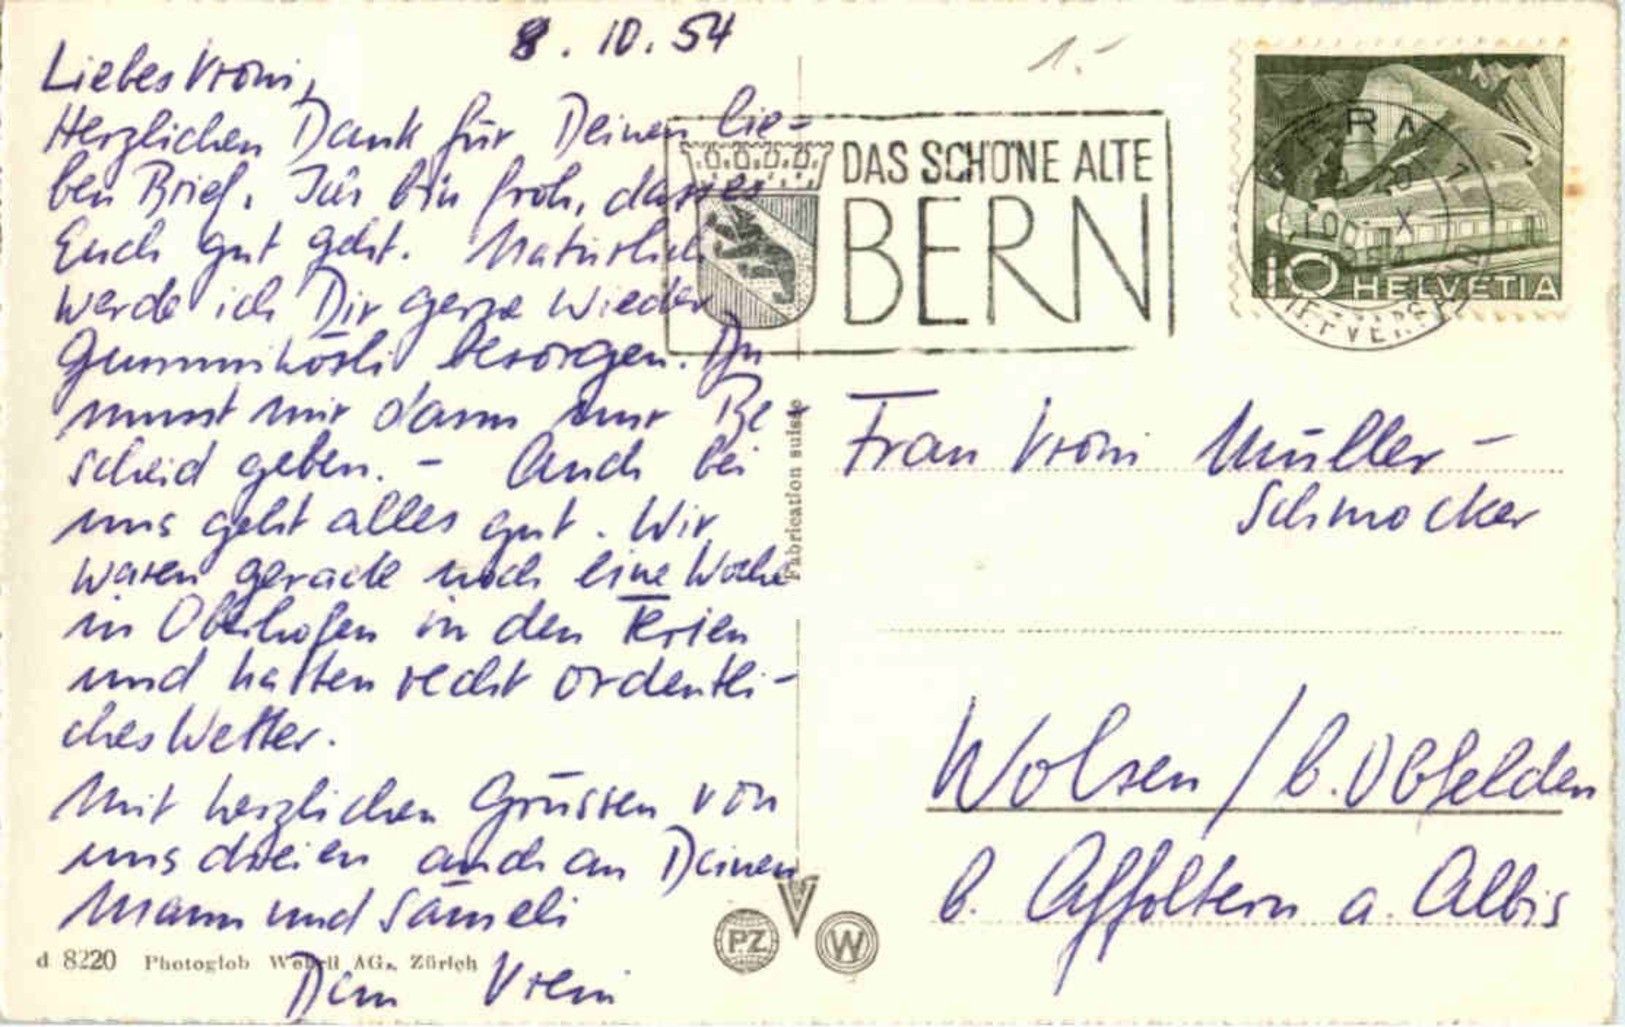 8. 10. 54
Liebes Vroni,
Herzlichen Dank für Deinen lie-
ben Brief. Ich bin froh, dass es
Euch gut geht. Natürlich
werde ich Dir gerne wieder
Gummihösli besorgen. Du
musst mir dann nur Be-
scheid geben. - Auch bei
uns geht alles gut. Wir
waren gerade noch eine Woche
in Oberhofen in den Ferien
und hatten recht ordentli-
ches Wetter.
Mit herzlichen Grüssen von
uns dreien auch an Deinen
Mann und Sämeli
Dein Vreni
d 8220 Photoglob Wehrli AG., Zürich
Fabrication suisse
PZ
W
1.-
DAS SCHÖNE ALTE
BERN
10 HELVETIA
Frau Vroni Müller-
Schmocker
Wolsen / b. Obfelden
b. Affoltern a. Albis